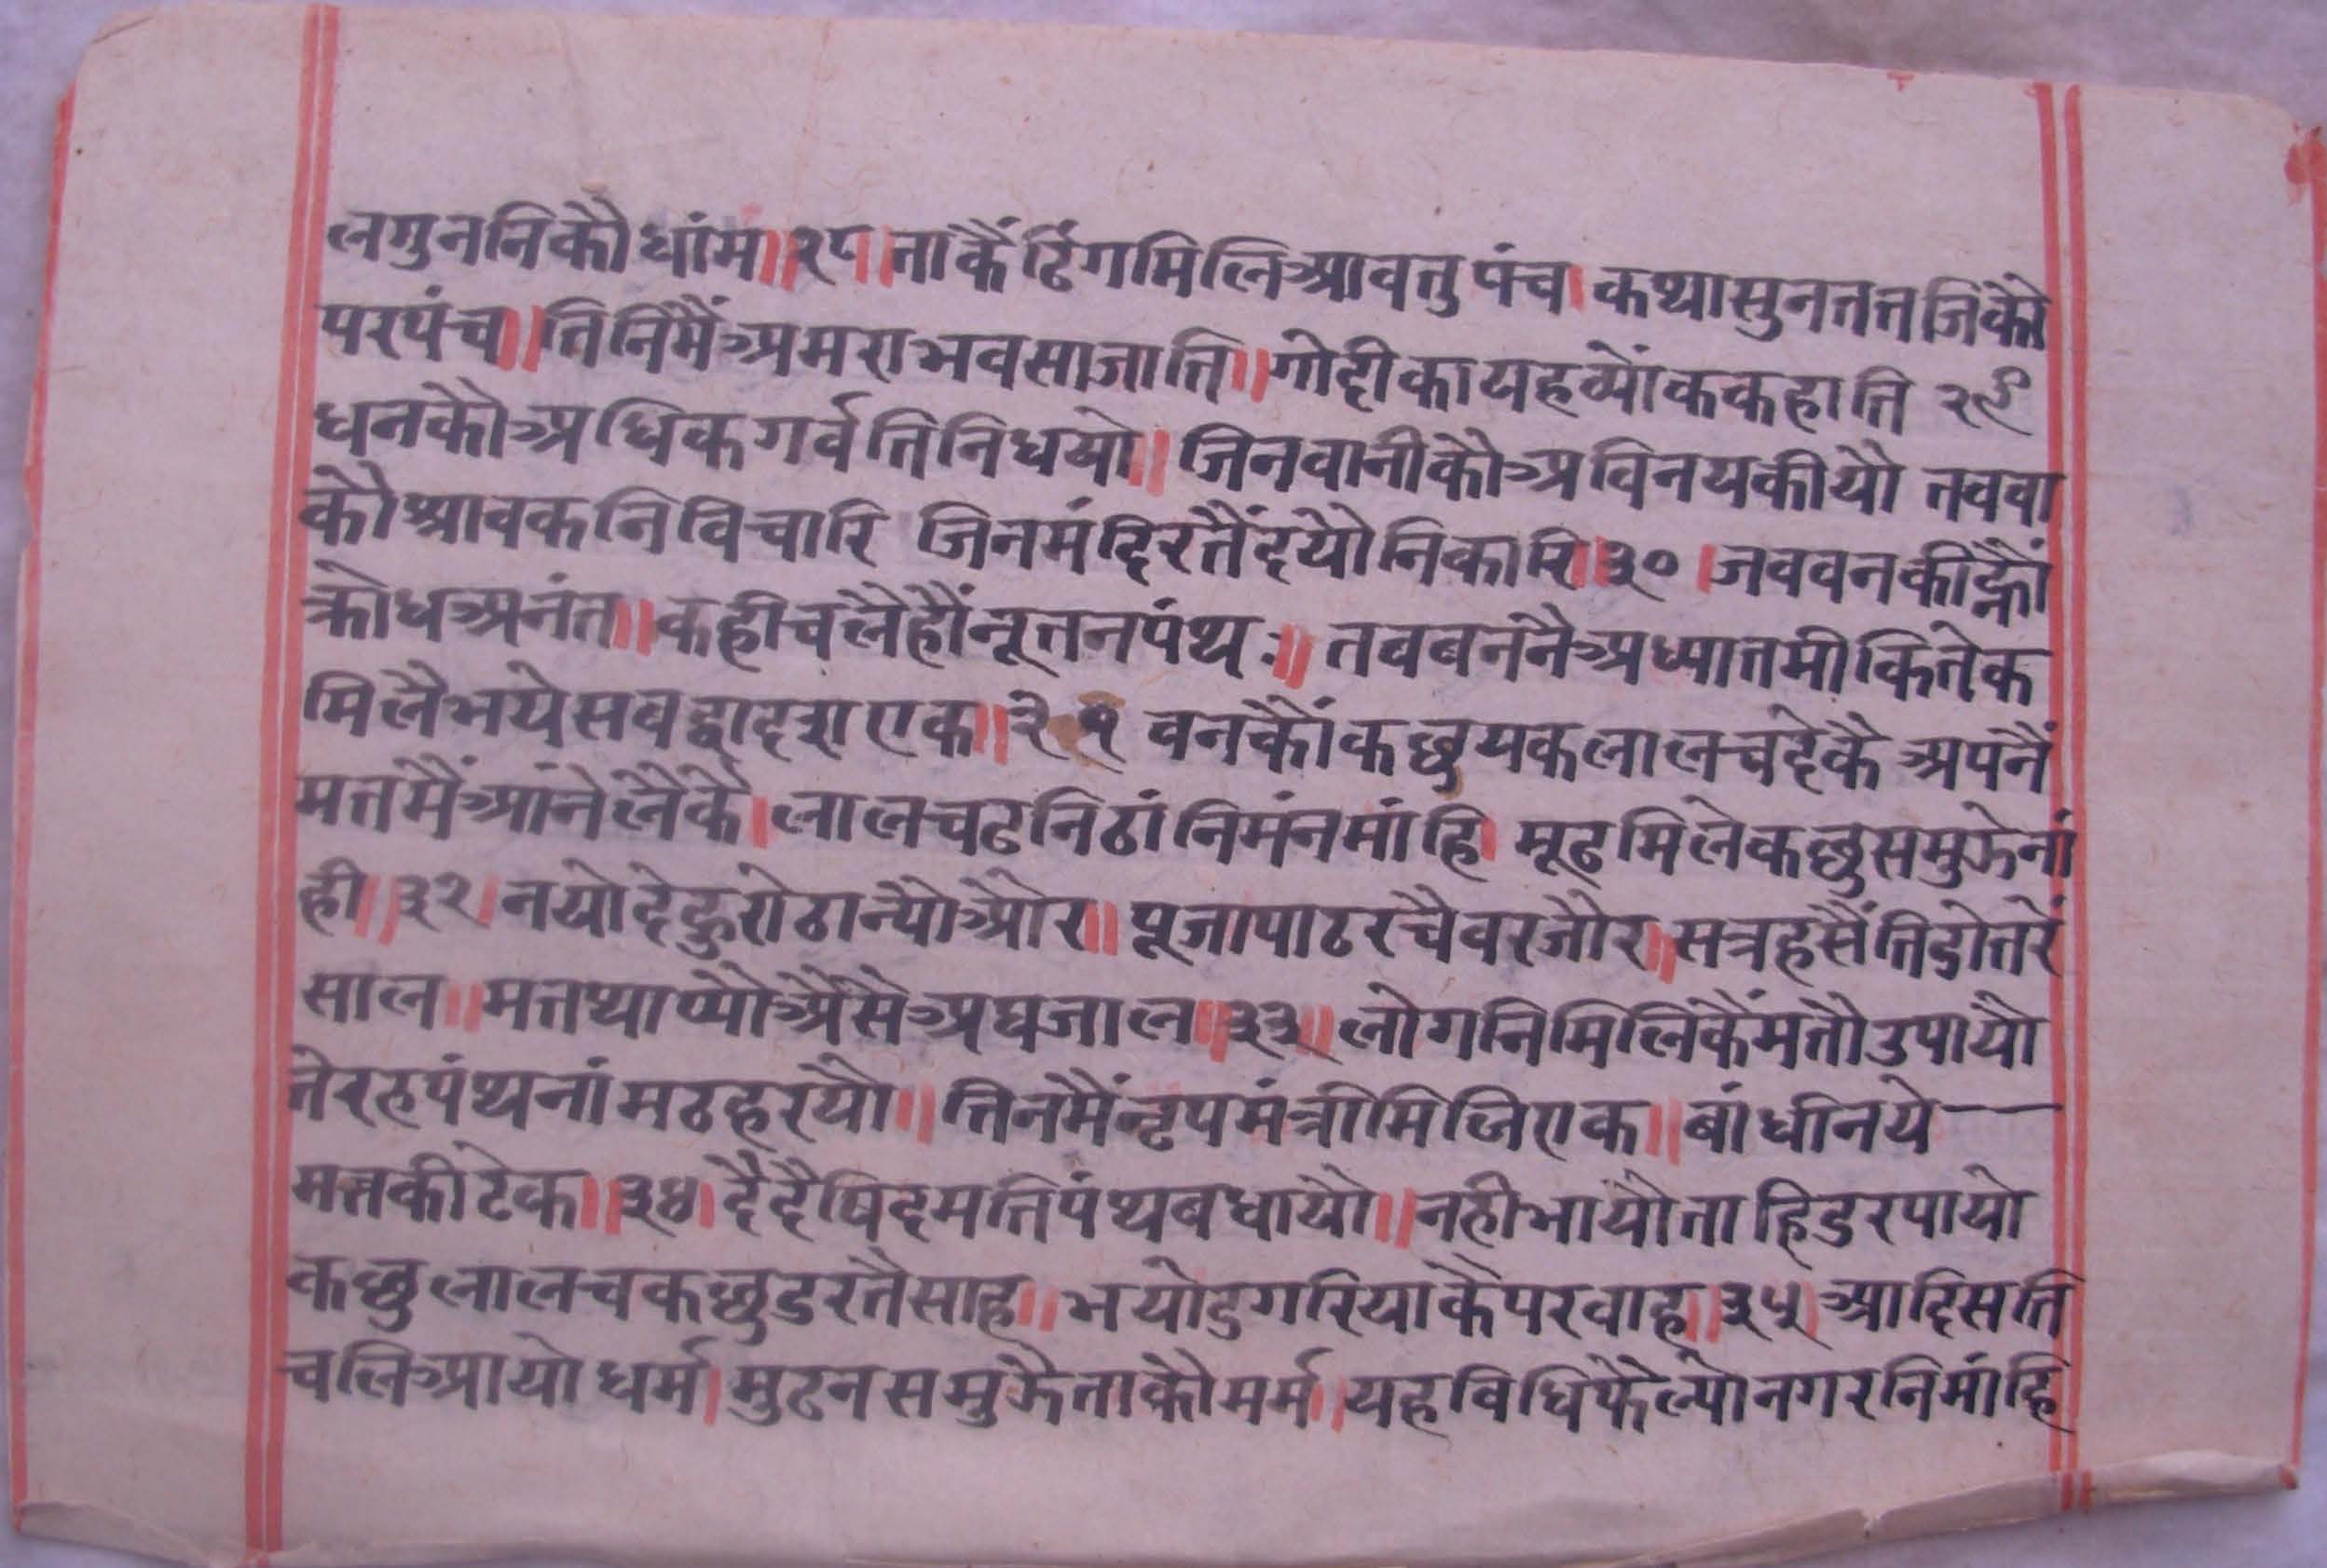 लगुननिकौ धांम॥२८॥ताकैं ढिंगमिलिआवतु पंच। कथासुनततजिकौ
परपंच॥तिनिमैंअमराभवसाजाति॥गोदीकायहव्योंककहाति २९
धनकौअधिकगर्वतिनिधयो॥ जिनवानीकौअविनयकीयौ तववा
कौश्रावकनिविचारि जिनमंदिरतैंदयौनिकारि॥३०।जववनकीन्हौं
क्रोधअनंत॥कहीचलैहौंनूतनपंथ॥ तवबननैअध्यातमीकितेक
मिलैभयेसवद्वादशएक॥३१ वनकौंकछुयकलालचदेकै अपनैं
मतमैंआंनेलैकै।लालचढनिठांनिमंनमांहि। मूढमिलेकछुसमुझेनां
ही॥३२।नयोदेहुरोठान्यौऔर॥ पूजापाठरचैवरजोर॥सत्रहसैंतिडोतरें
साल॥मतथाप्यौअैसैअघजाल॥३३॥लोगनिमिलिकैंमतौउपायौ
तेरहपंथनांमठहरयौ॥तिनमैंन्टपमंत्रीमिलिएक॥बांधीनये—
मतकीटेक॥३४।दैदैषिदमतिपंथबधायौ॥नहीभायौताहिडरपायो
कछुलालचकछुडरतैसाह॥भयोडुगरियाकैपरवाह॥३५।आदिसति
चलिआयोधर्म।मुढनसमुझैताकौमर्म॥यहविधिफैल्यौनगरनिमांहि